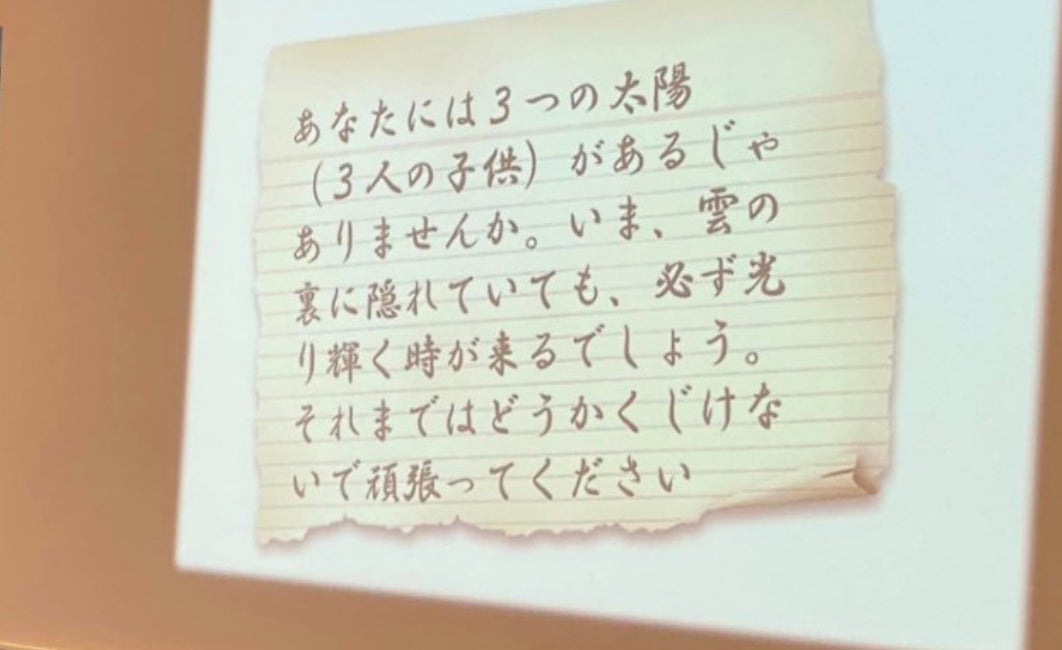 あなたには３つの太陽
（３人の子供）があるじゃ
ありませんか。いま、雲の
裏に隠れていても、必ず光
り輝く時が来るでしょう。
それまではどうかくじけな
いで頑張ってください